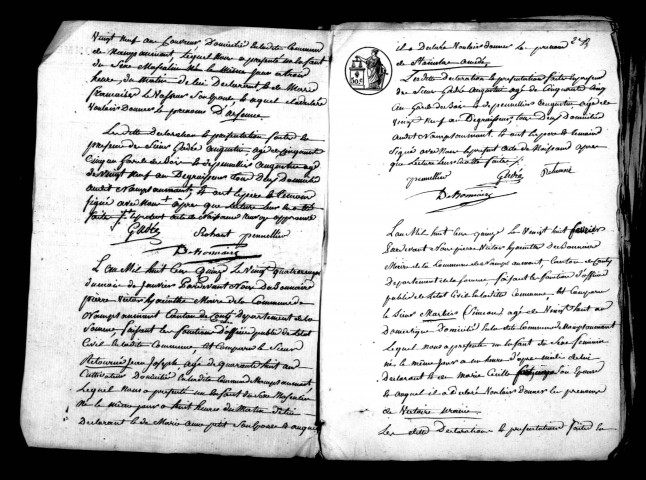 vingt neuf an Couvreur Domicilié en ladite Commune
de Namps aumont, lequel nous a présenté un Enfant
du Sexe Masculin Né le même jour a trois
heure, du Matin de lui Declarant & de Marie
son Epouse & auquel il a declaré
vouloir Donner le prenoms D'arsenne
Lesdite Declaration & presentation faites en
presence de Sieur Gadré Augustin, agé de Cinquante
Cinq garde de bois & de pennellier augustin agé
de vingt neuf an Degraisseur tous deux Domicilié
audit Namps aumont & ont le pere & temoin
signé avec nous apres que lecture leur a été
faite le present acte de Naissance
Gadré pennellier
De Bonnaire
L'an Mil huit Cent quinze le vingt quatre
du mois de janvier Pardevant Nous De Bonnaire
pierre victor hyacinthe Maire de la Commune de
Namps aumont Canton de Conty departement de la
Somme, faisant les fonction d'officier public de l'état
Civil de ladite Commune, est Comparu le Sieur
Jean Joseph agé de quarante huit an
Cultivateur Domicilié en ladite Commune de Namps aumont
Lequel Nous a presenté un Enfant du Sexe Masculin
Né le même jour a huit heures du Matin De lui
Declarant & de Marie anne petit Son Epouse & auquel
il a Declaré Vouloir donner les prenoms
de Stanislas amédé
Lesdite Declaration & presentation faites en presence
de Sieur Gadré Augustin agé de Cinquante Cinq
an Garde de bois & de pennellier augustin agé de
vingt neuf an Degraisseur, tous deux Domicilié
audit Namps aumont & ont le pere & temoin
Signé avec Nous le present acte de Naissance apres
que Lecture leur a été faite
pennellier Gadré
De Bonnaire
L'an Mil huit Cent quinze le vingt huit fevrier
Pardevant Nous pierre victor hyacinthe De Bonnaire
Maire de la Commune de Namps aumont, Canton de Conty
departement de la Somme, faisant les fonction d'officier
public de l'état Civil de ladite Commune, est Comparu
le Sieur Simeon agé de vingt huit an
Domestique Domicilié en ladite Commune de Namps aumont
Lequel nous a presenté un Enfant du Sexe feminin
né le même jour a un heure d'apres midi de lui
Declarant & de Marie son Epouse
& auquel il a Declaré Vouloir donner les prenoms
de Victoire
Les dite Declaration & presentation faites en